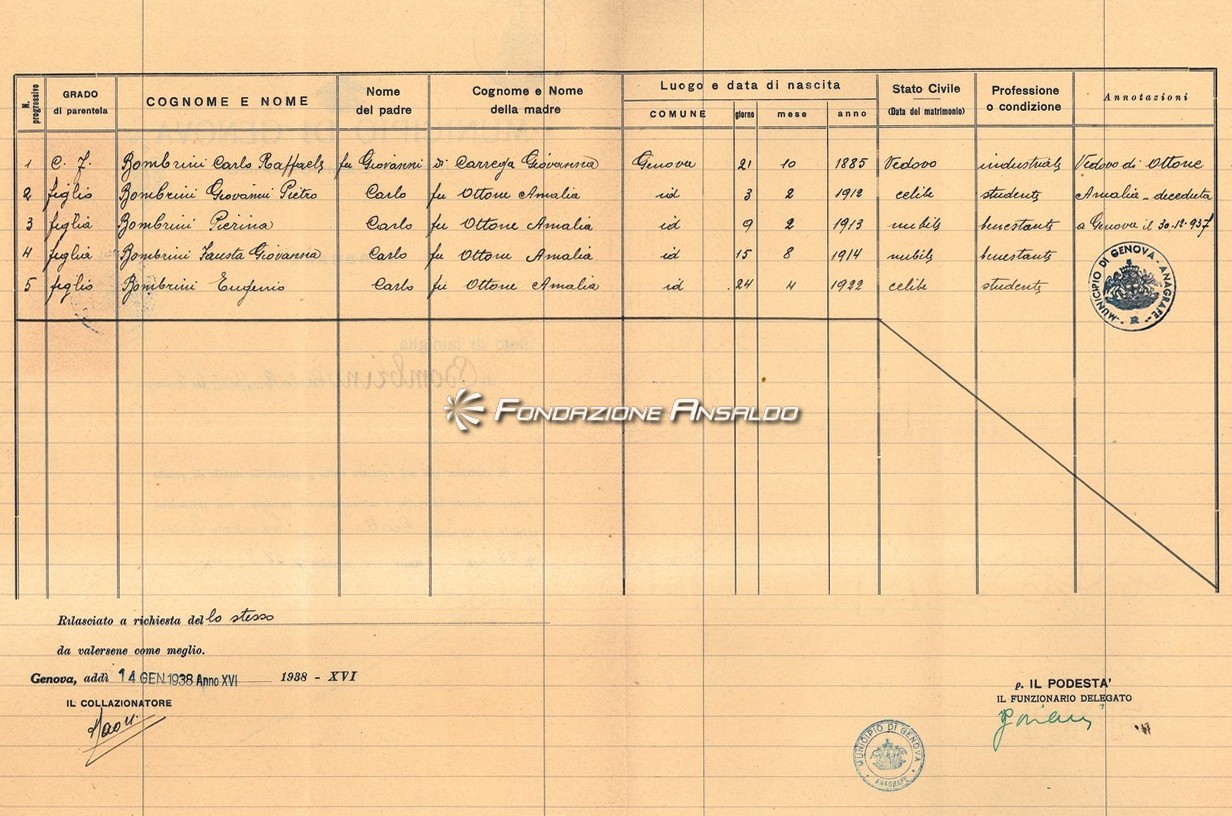 N. progressivo GRADO di parentela COGNOME E NOME Nome del padre Cognome e Nome della madre Luogo e data di nascita COMUNE giorno mese anno Stato Civile (Data del matrimonio) Professione o condizione Annotazioni
1 C. F. Bombrini Carlo Raffaele fu Giovanni di Carrega Giovanna Genova 21 10 1885 Vedovo industriale Vedovo di Ottone
2 figlio Bombrini Giovanni Pietro Carlo fu Ottone Amalia id 3 2 1912 celibe studente Amalia - deceduta
3 figlia Bombrini Pierina Carlo fu Ottone Amalia id 9 2 1913 nubile benestante a Genova il 30-12-937
4 figlia Bombrini Fausta Giovanna Carlo fu Ottone Amalia id 15 8 1914 nubile benestante
5 figlio Bombrini Eugenio Carlo fu Ottone Amalia id 24 4 1922 celibe studente
MUNICIPIO DI GENOVA - ANAGRAFE -
Stato di famiglia
Bombrini
FONDAZIONE ANSALDO
Rilasciato a richiesta del lo stesso
da valersene come meglio.
Genova, addì 14 GEN. 1938 Anno XVI 1938 - XVI
IL COLLAZIONATORE
p. IL PODESTA'
IL FUNZIONARIO DELEGATO
MUNICIPIO DI GENOVA
ANAGRAFE